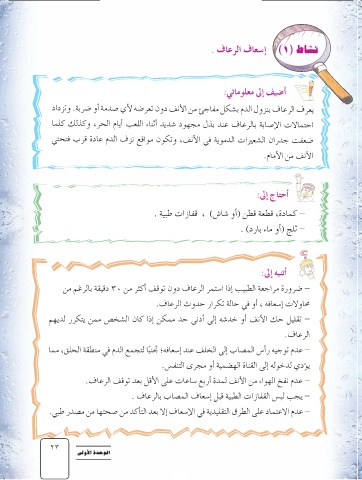 نشاط (١)
إسعاف الرعاف .
أضيف إلى معلوماتي:
يعرف الرعاف بنزول الدم بشكل مفاجئ من الأنف دون تعرضه لأي صدمة أو ضربة. وتزداد
احتمالات الإصابة بالرعاف عند بذل مجهود شديد أثناء اللعب أيام الحر، وكذلك كلما
ضعفت جدران الشعيرات الدموية في الأنف، وتكون مواقع نزف الدم عادة قرب فتحتي
الأنف من الأمام.
أحتاج إلى:
– كمادة، قطعة قطن (أو شاش) ، قفازات طبية .
– ثلج (أو ماء بارد) .
أنتبه إلى:
– ضرورة مراجعة الطبيب إذا استمر الرعاف دون توقف أكثر من ٣٠ دقيقة بالرغم من
محاولات إسعافه ، أو في حالة تكرار حدوث الرعاف.
– تقليل حك الأنف أو خدشه إلى أدنى حد ممكن إذا كان الشخص ممن يتكرر لديهم
الرعاف.
– عدم توجيه رأس المصاب إلى الخلف عند إسعافه؛ تجنبًا لتجمع الدم في منطقة الحلق، مما
يؤدي لدخوله إلى القناة الهضمية أو مجرى التنفس.
– عدم نفخ الهواء من الأنف لمدة أربع ساعات على الأقل بعد توقف الرعاف.
– يجب لبس القفازات الطبية قبل إسعاف المصاب بالرعاف .
– عدم الاعتماد على الطرق التقليدية في الإسعاف إلا بعد التأكد من صحتها من مصدر طبي.
الوحدة الأولى
٢٣